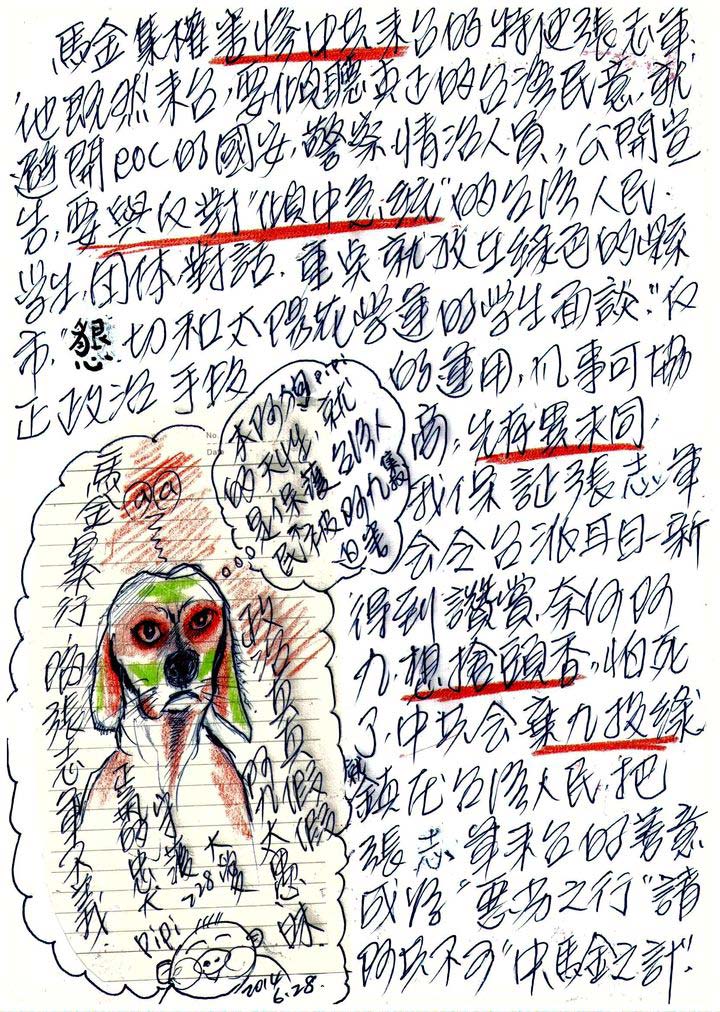 馬金集權害慘中共來台的特使張志軍.
他既然來台,要傾聽真正的台灣民意,就
避開ROC的國安,警察,情治人員,公開宣
告,要與反對"傾中急統"的台灣人民.
學生,団体,對話.重點就放在綠色的縣
市."懇切和太陽花學運的學生面談."反
正政治手段的運用,凡事可協
商,先存異求同,
我保証張志軍
會令台派耳目一新
得到讚賞.奈何阿
九,想搶頭香,怕死
了,中共會棄九投綠
就鎮压台灣人民,把
張志軍來台的善意
成為"惡劣之行"諸
阿共不可"中馬金之計".
本阿狗pipi
的天性,就
是保護台灣人
民不被阿九蔥
迫害
No.
Date
@@
馬金暴行,陷張志軍不義.
政治
阿九假
太愚昧
正義的忠犬
守護大隊
228
pipi
2014
6.28.